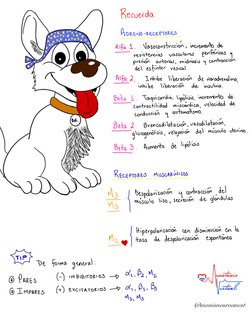 Recuerda
ADRENO-RECEPTORES
Alfa 1. Vasoconstricción, incremento de
resistencias vasculares periféricas y
presión arterial, midriasis y contracción
del esfínter vesical
Alfa 2. Inhibe liberación de noradrenalina,
inhibe liberación de insulina.
Beta 1. Taquicardia, lipólisis, incremento de
contractilidad miocárdica, velocidad de
conducción y automatismo.
Beta 2 Broncodilatación, vasodilatación,
glucogenólisis, relajación del músculo uterino
Beta 3. Aumento de lipólisis
RECEPTORES MUSCARÍNICOS
M1
M3 Despolarización y contracción del
músculo liso, secreción de glándulas
M2 Hiperpolarización con disminución en la
tasa de despolarización espontánea
TIP
De forma general:
@ PARES (-) INHIBITORIOS → α2, β2, M2
@ IMPARES (+) EXCITATORIOS → α1, β1, β3
M1, M3